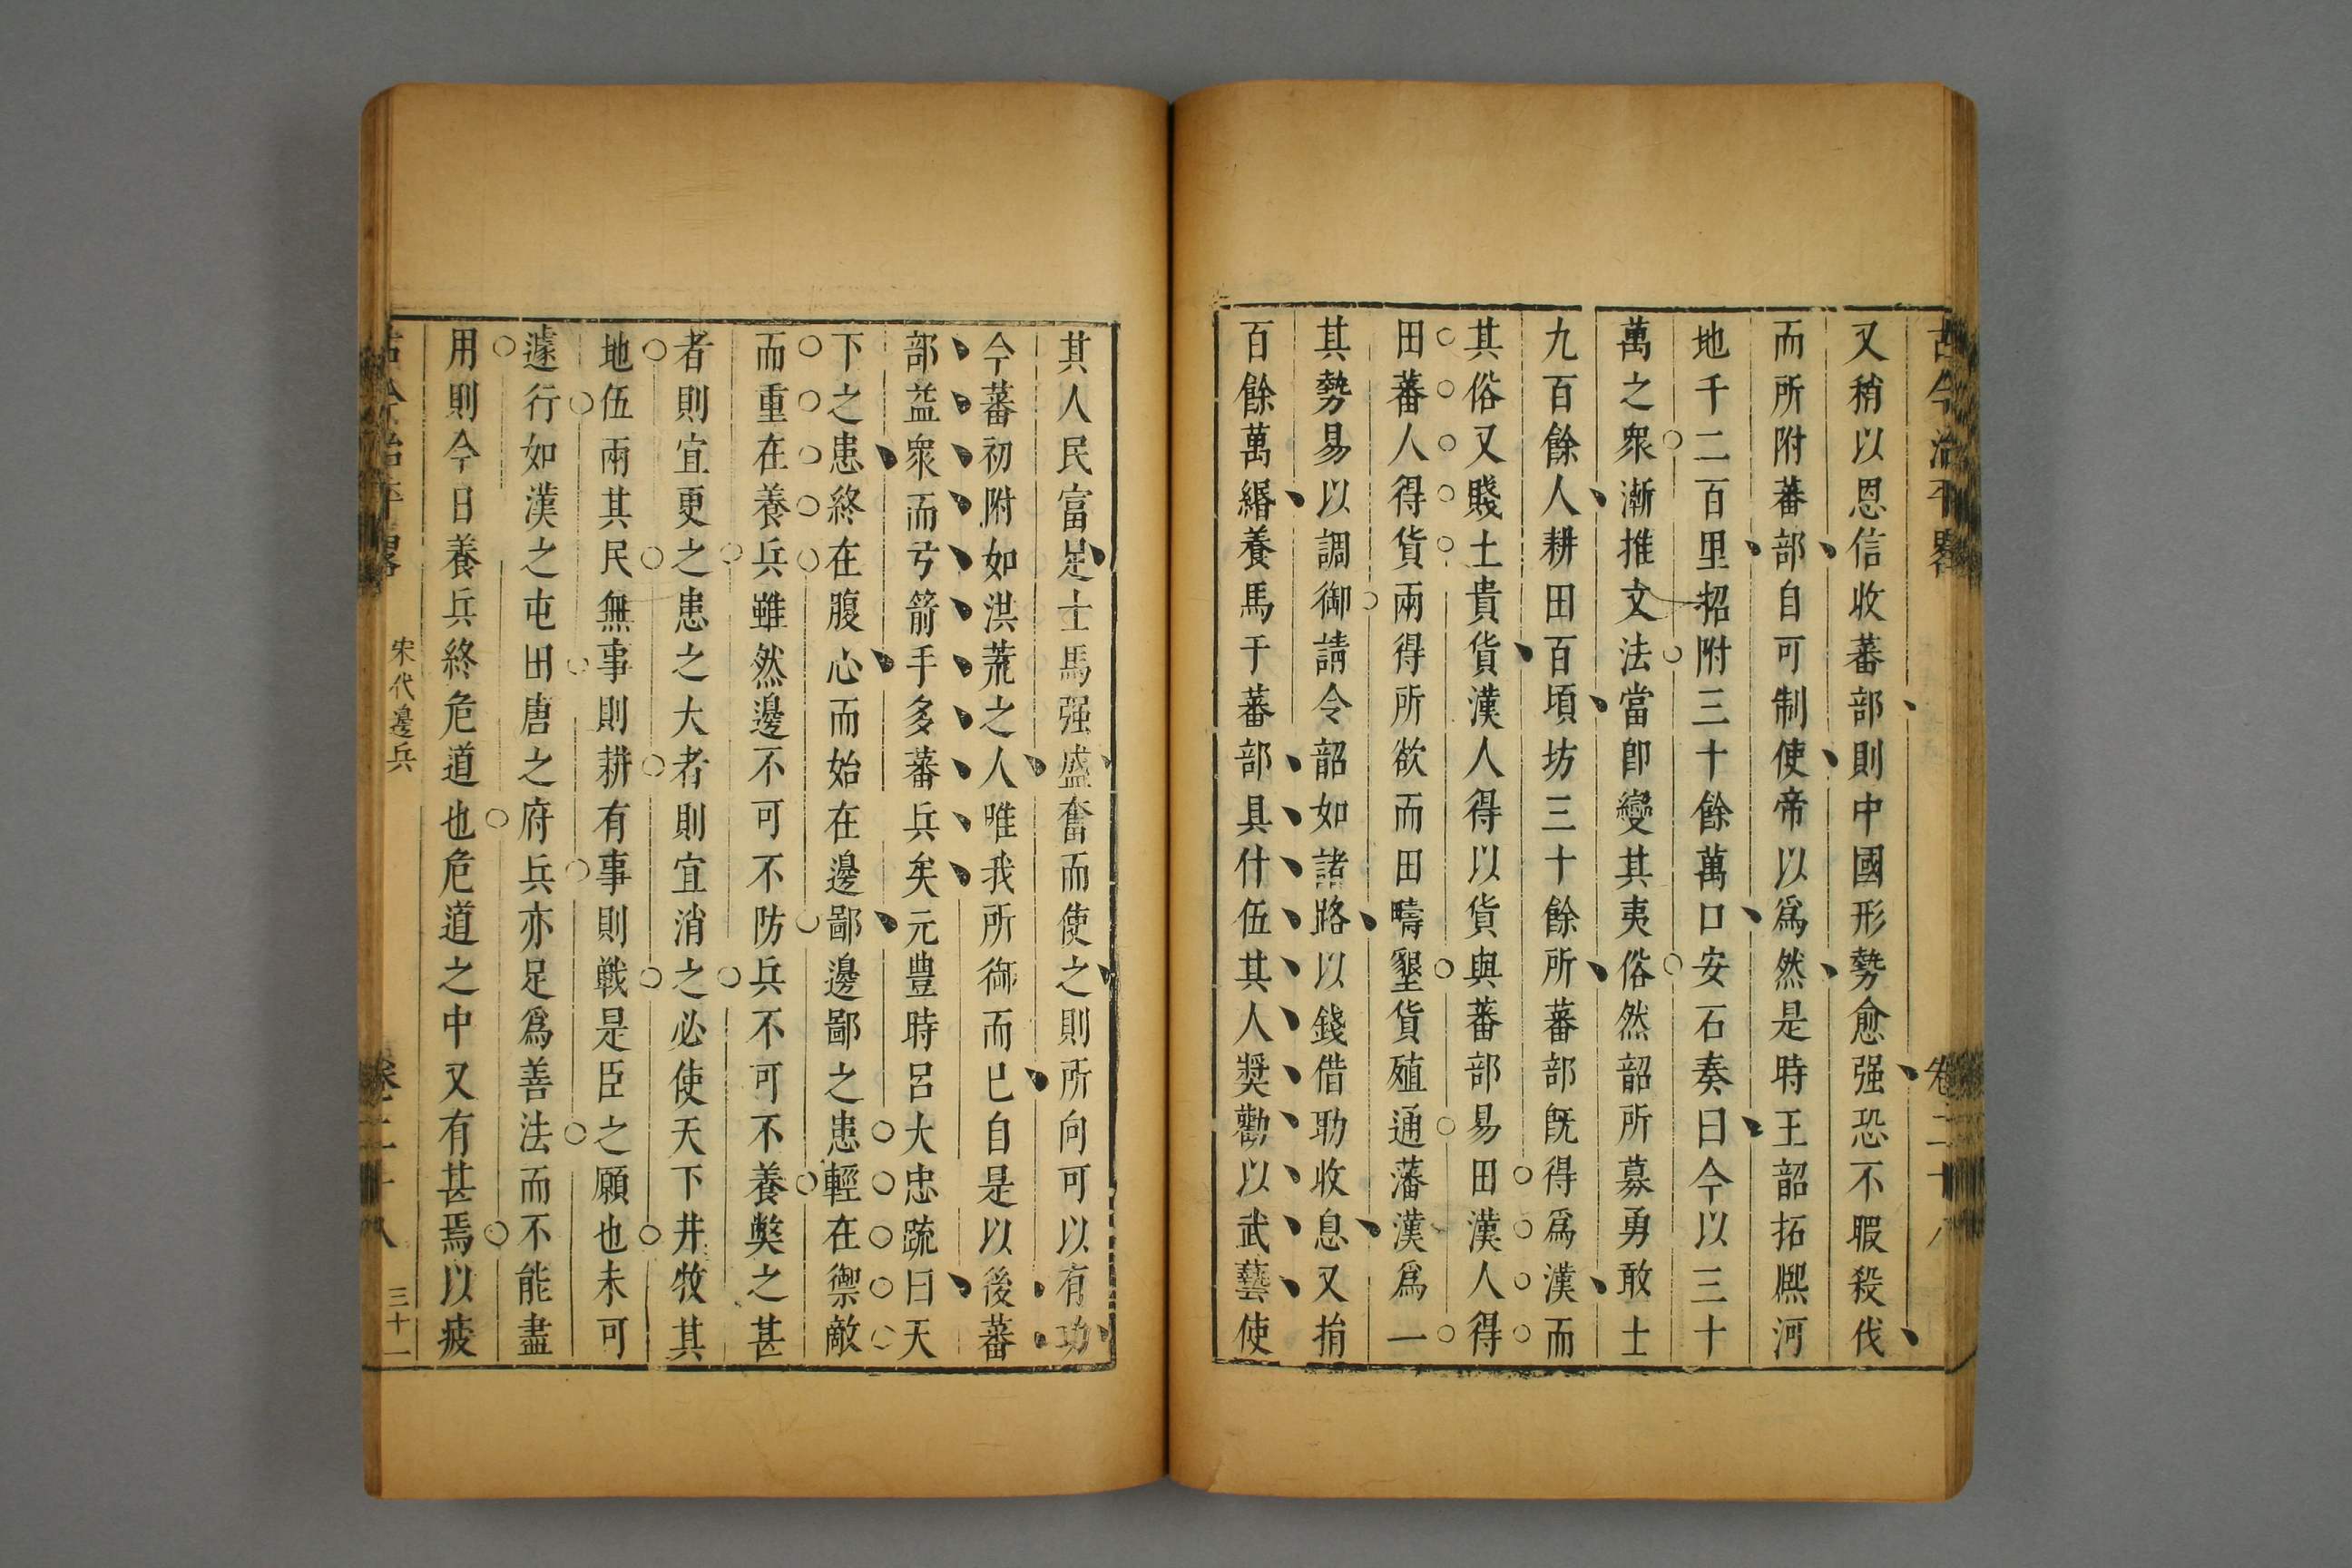 又稍以恩信收蕃部則中國形勢愈强恐不暇殺伐
而所附蕃部自可制使帝以爲然是時王韶拓熈河
地千二百里招附三十餘萬口安石奏曰今以三十
萬之衆漸推文法當卽變其夷俗然韶所募勇敢士
九百餘人耕田百頃坊三十餘所蕃部旣得爲漢而
其俗又賤土貴貨漢人得以貨與蕃部易田漢人得
田蕃人得貨兩得所欲而田疇墾貨殖通藩漢爲一
其勢易以調御請令韶如諸路以錢借助收息又捐
百餘萬緡養馬于蕃部具什伍其人奬勸以武藝使
其人民富足士馬强盛奮而使之則所向可以有功
今蕃初附如洪荒之人唯我所御而已自是以後蕃
部益衆而弓箭手多蕃兵矣元豊時呂大忠疏曰天
下之患終在腹心而始在邊鄙邊鄙之患輕在禦敵
而重在養兵雖然邊不可不防兵不可不養獘之甚
者則宜更之患之大者則宜消之必使天下井牧其
地伍兩其民無事則耕有事則戰是臣之願也未可
遽行如漢之屯田唐之府兵亦足爲善法而不能盡
用則今日養兵終危道也危道之中又有甚焉以疲
宋代邊兵
卷二十八
三十一